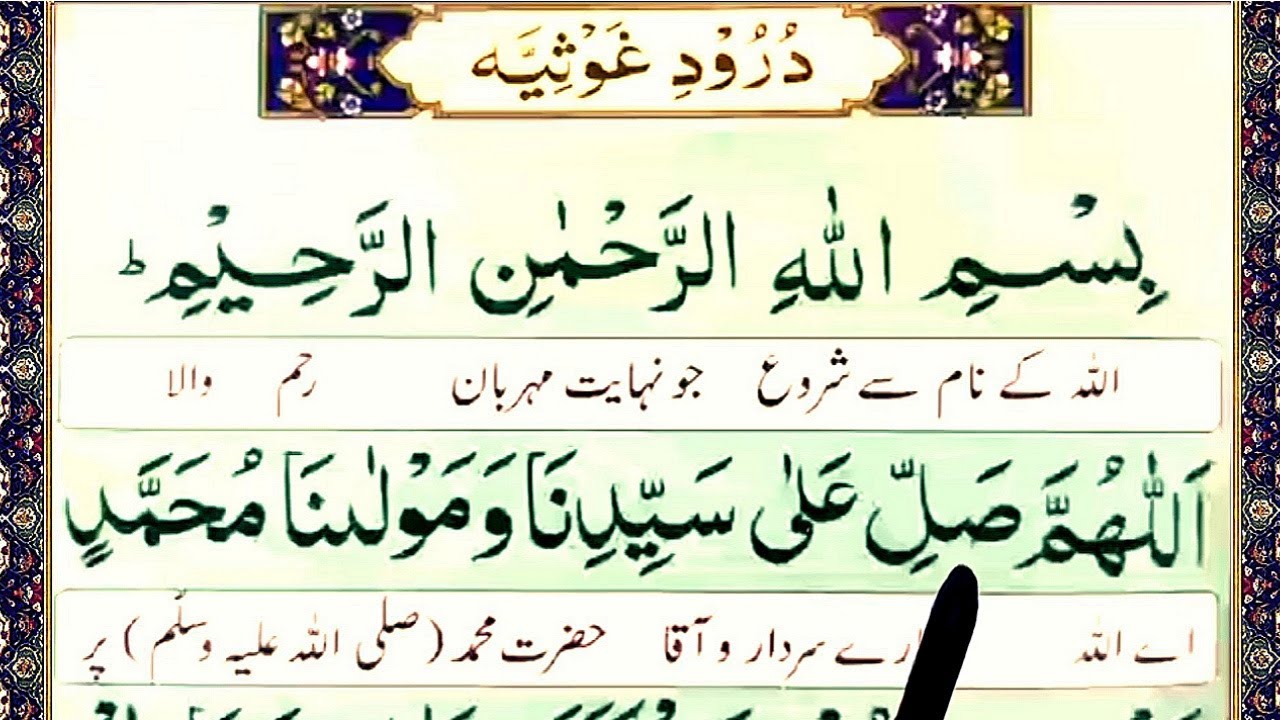 دُرُوْدِ غَوْثِیَّہ
بِسْمِ اللّٰهِ الرَّحْمٰنِ الرَّحِیْمِ ط
اللہ کے نام سے شروع جو نہایت مہربان رحم والا
اَللّٰهُمَّ صَلِّ عَلٰی سَیِّدِنَا وَمَوْلٰىنَا مُحَمَّدٍ
اے اللہ سردار و آقا حضرت محمد (صلی اللہ علیہ وسلم) پر